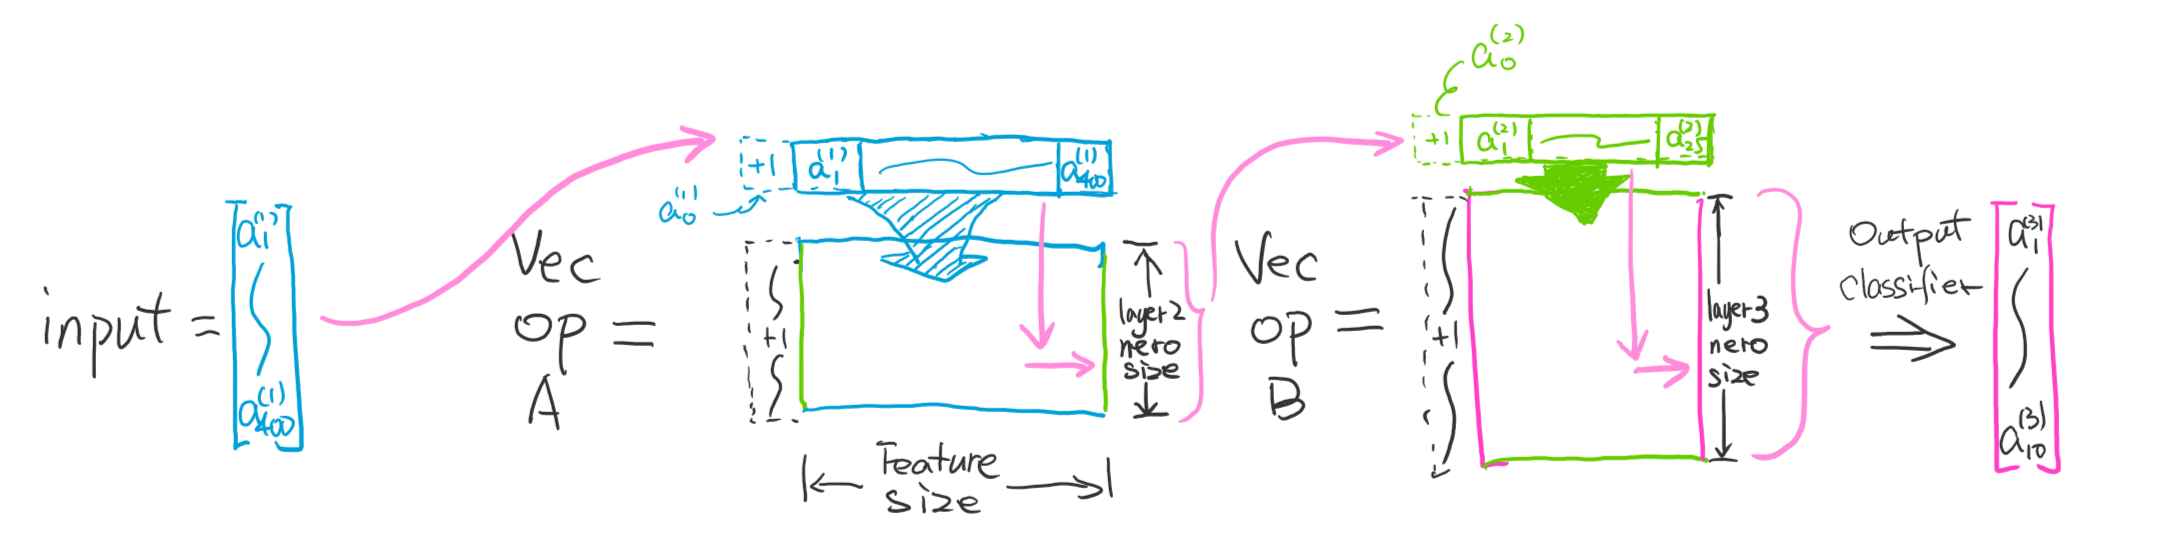 input =
a₁⁽¹⁾
a₄₀₀⁽¹⁾
Vec
op =
A
+1
a₁⁽¹⁾
a₄₀₀⁽¹⁾
a₀⁽¹⁾
+1
layer2
nero
size
Feature
size
Vec
op =
B
a₀⁽²⁾
+1
a₁⁽²⁾
a₂₅⁽²⁾
+1
layer3
nero
size
Output
classifier
⇒
a₁⁽³⁾
a₁₀⁽³⁾